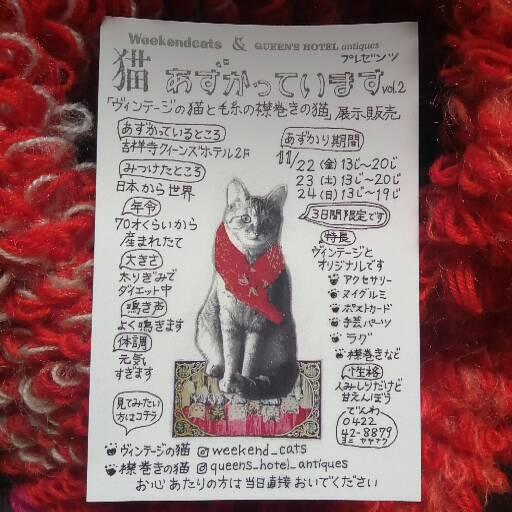 Weekendcats & QUEEN'S HOTEL antiques
プレゼンツ
猫あずかっています vol.2
「ヴィンテージの猫と毛糸の襟巻きの猫」展示販売
あずかっているところ
吉祥寺クイーンズホテル2F
みつけたところ
日本から世界
年令
70才くらいから
産まれたて
大きさ
太りぎみで
ダイエット中
鳴き声
よく鳴ぎます
体調
元気
すぎます
見てみたい
方はコチラ
あずかり期間
11/22(金)13じ〜20じ
23(土)13じ〜20じ
24(日)13じ〜19じ
3日間限定です
特長
ヴィンテージと
オリジナルです
アクセサリー
ヌイグルミ
ポストカード
手芸パーツ
ラグ
襟巻きなど
性格
人みしりだけど
甘えんぼう
でんわ
0422
42-8879
ヴィンテージの猫 @weekend_cats
襟巻きの猫 @queens_hotel_antiques
お心あたりの方は当日直接おいでください